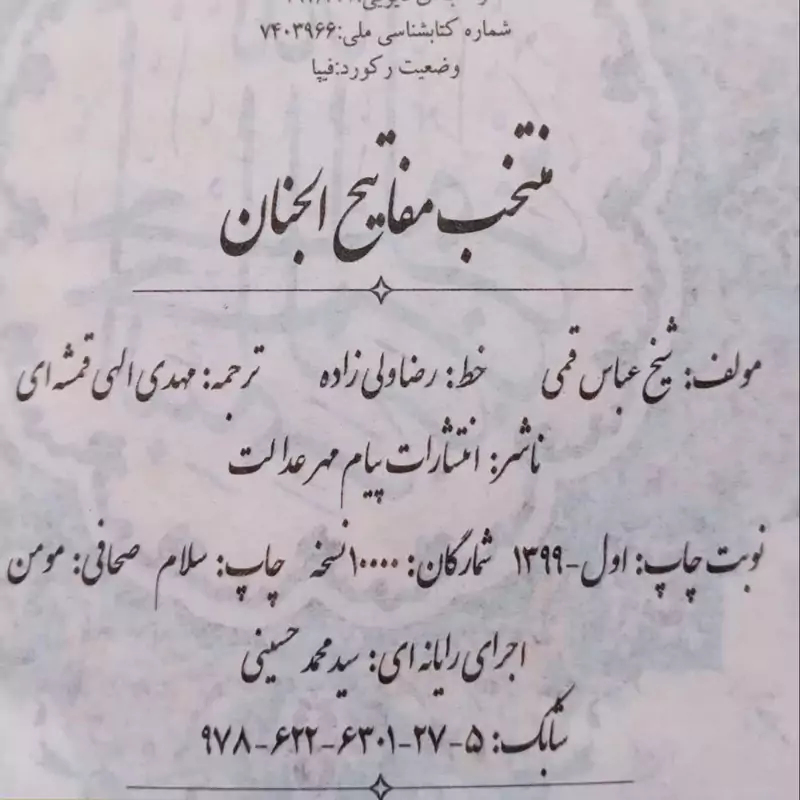 شماره کتابشناسی ملی:۷۴۰۳۹۶۶
وضعیت رکورد:فیپا
منتخب مفاتیح الجنان
مولف: شیخ عباس قمی خط: رضا ولی زاده ترجمه: مهدی الهی قمشه ای
ناشر: انتشارات پیام مهر عدالت
نوبت چاپ: اول-۱۳۹۹ شمارگان: ۱۰۰۰۰ نسخه چاپ: سلام صحافی: مومن
اجرای رایانه ای: سید محمد حسینی
شابک: ۵-۲۷-۶۳۰۱-۶۲۲-۹۷۸